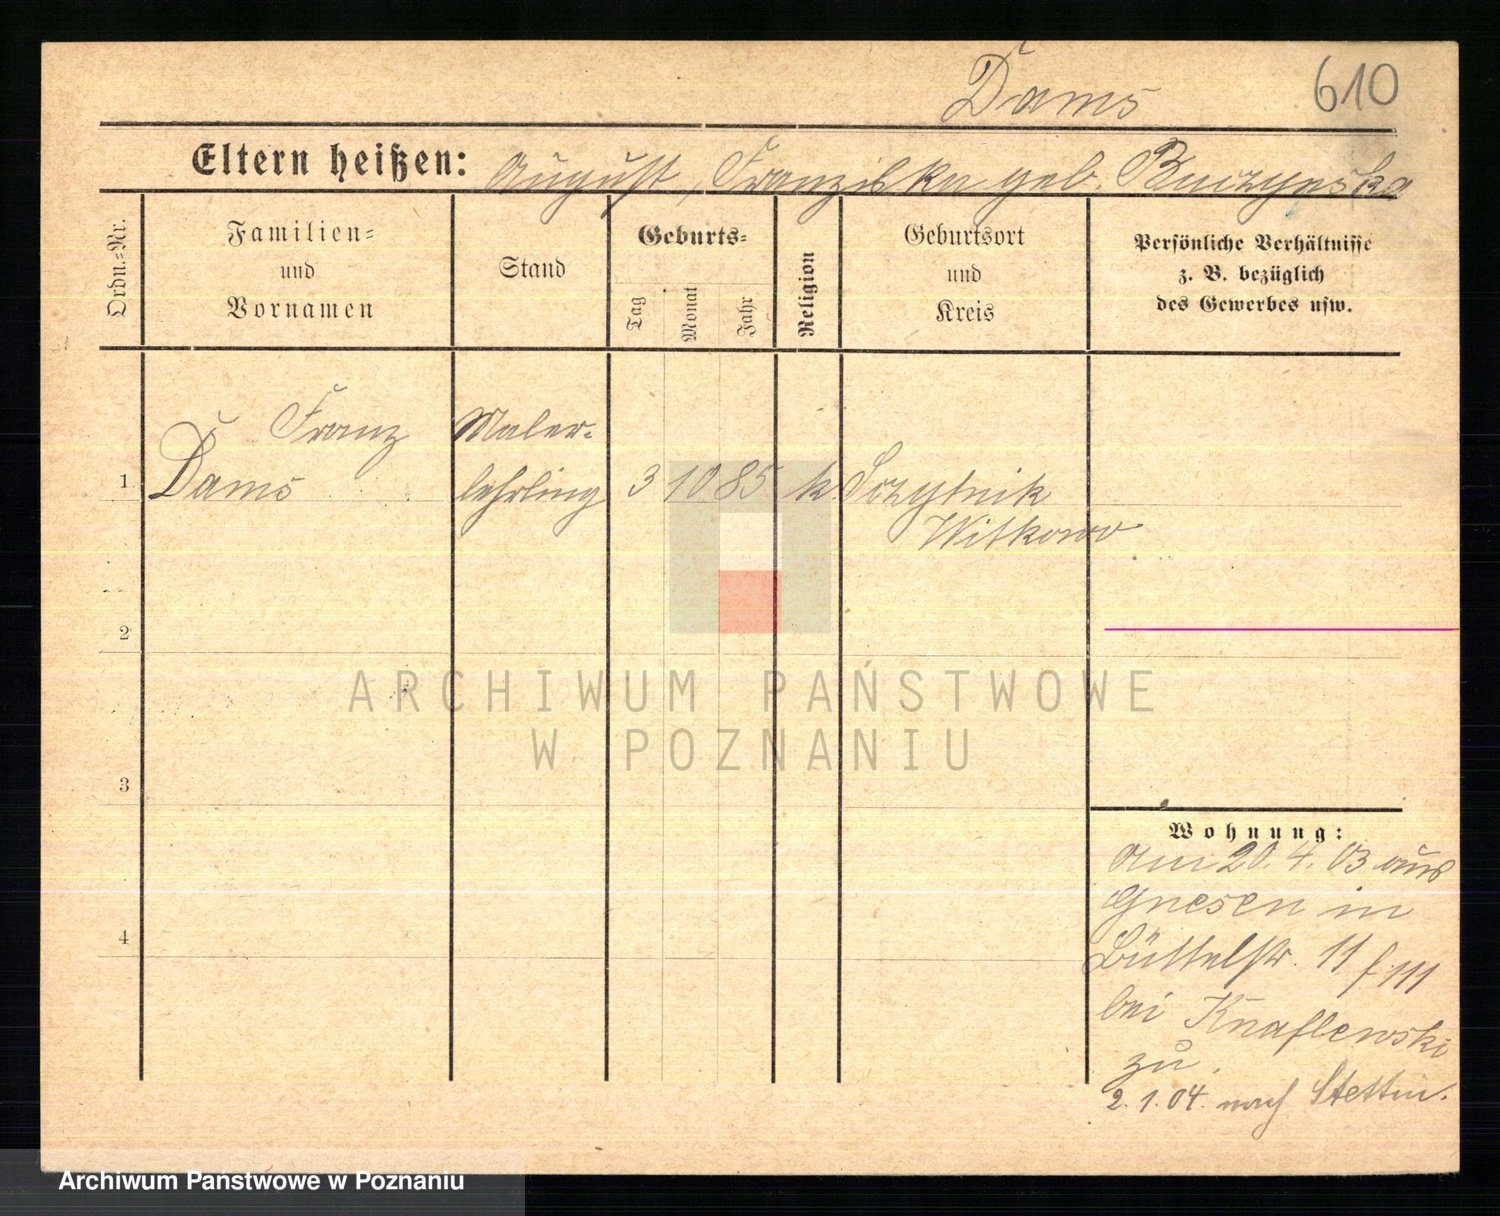 Dams 610
Eltern heißen: August, Franziska geb. Buczynska
Ordn.-Nr.
Familien-
und
Vornamen
Stand
Geburts-
Tag
Monat
Jahr
Religion
Geburtsort
und
Kreis
Persönliche Verhältnisse
z. B. bezüglich
des Gewerbes usw.
Franz Maler-
1 Dams lehrling 3 10 85 k Szczytnik
Witkowo
2
3
4
Wohnung:
Am 20.4.03 aus
Gnesen in
Büttelstr. 11
bei Knaflewski
zu.
2.1.04. nach Stettin.
ARCHIWUM PAŃSTWOWE
W POZNANIU
Archiwum Państwowe w Poznaniu